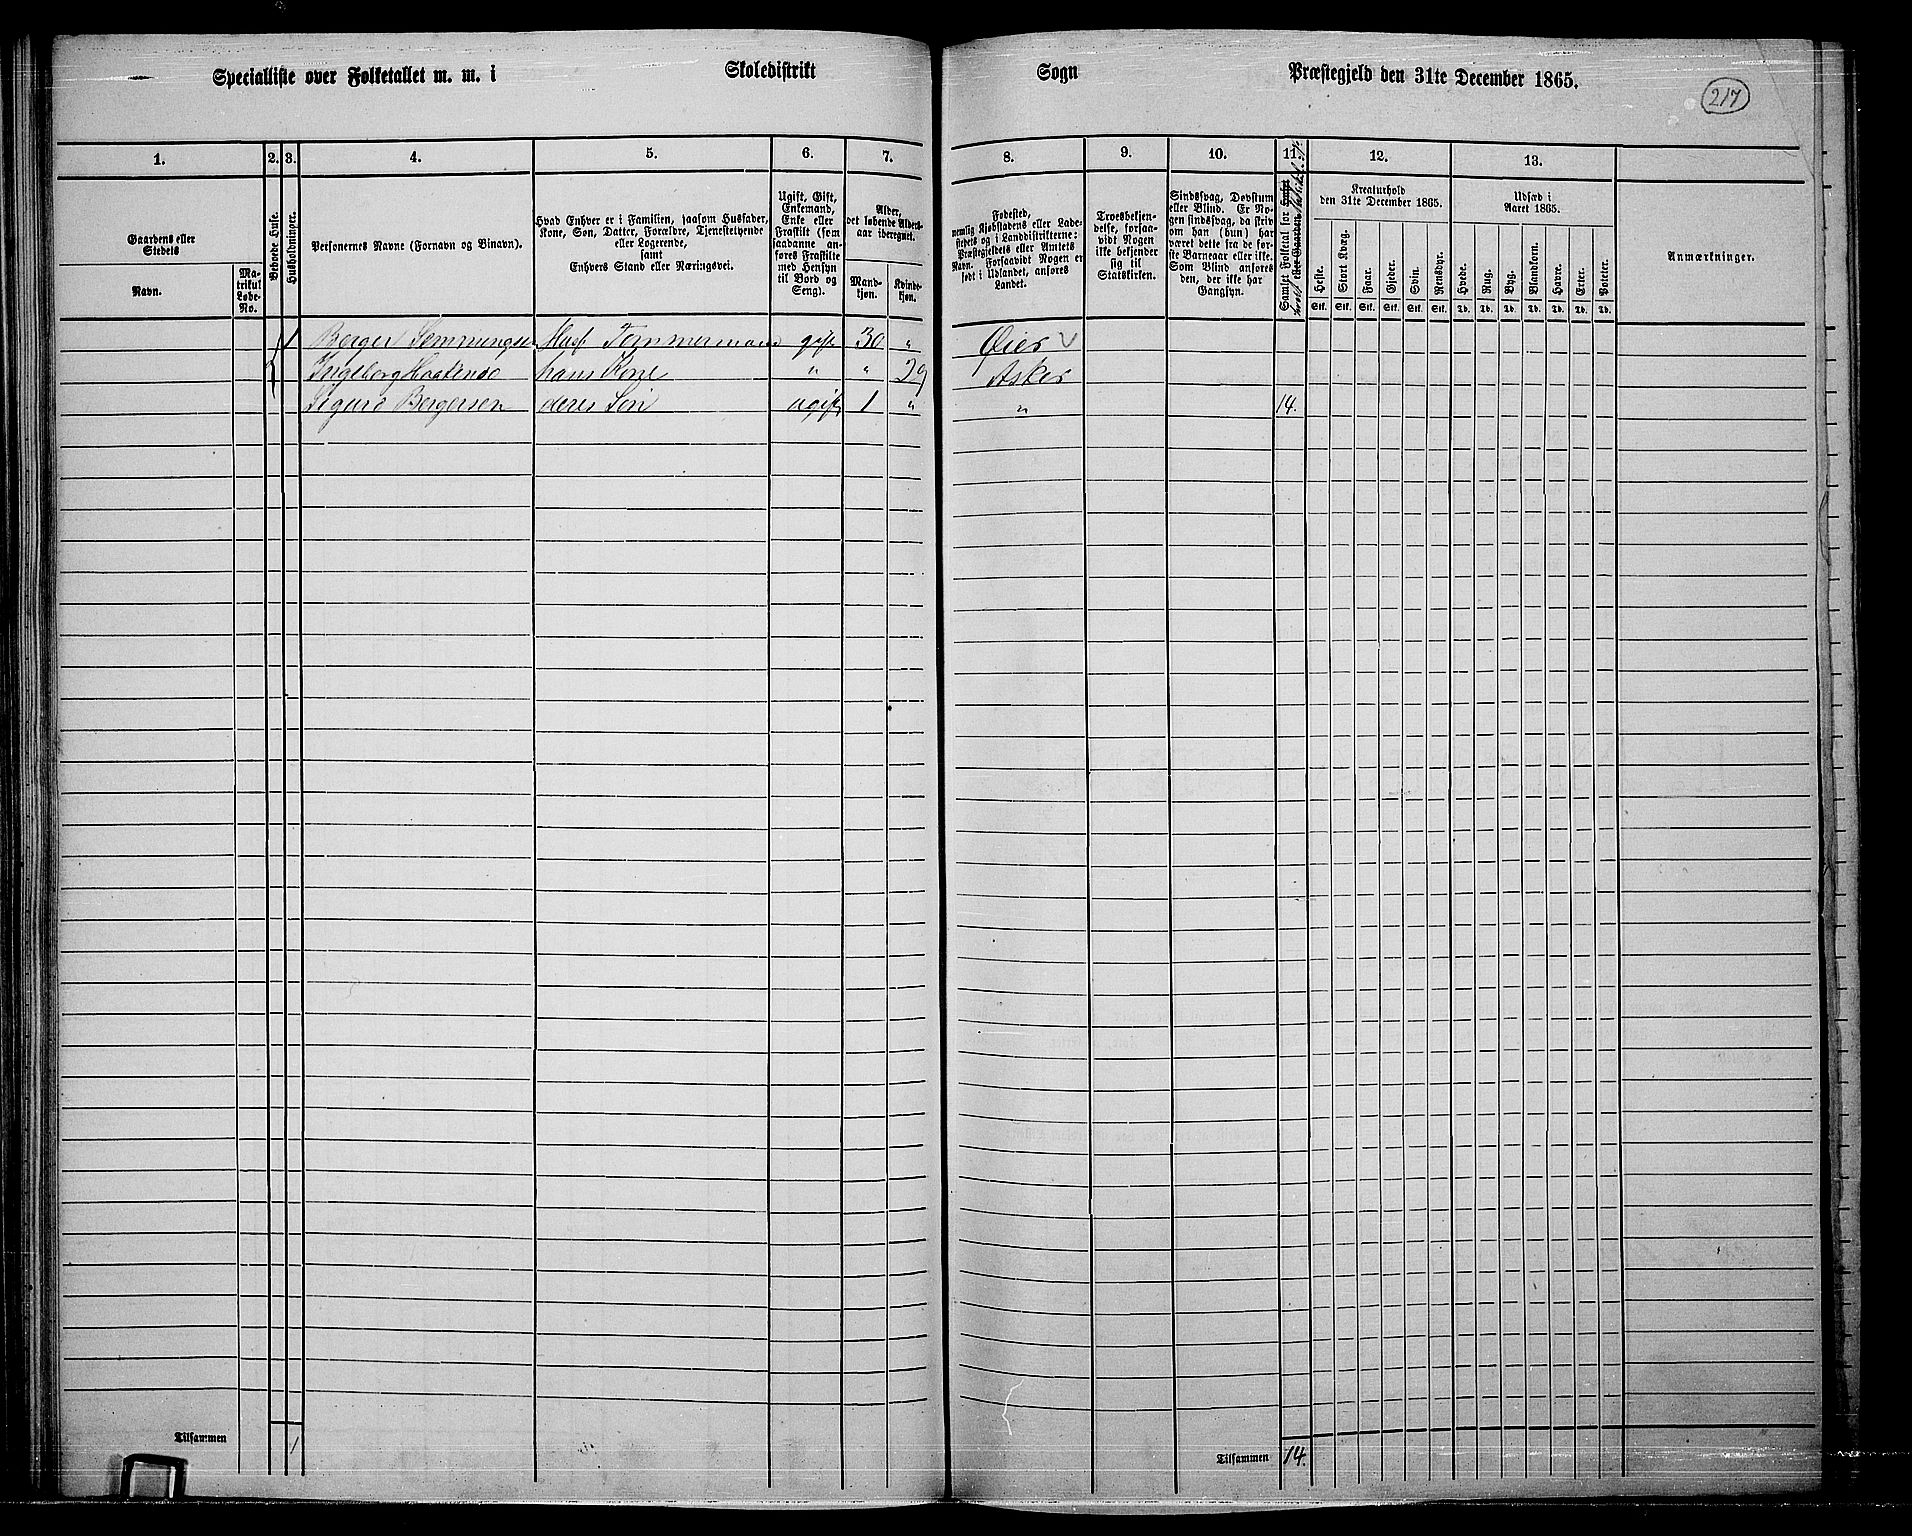 Specialliste over Folketallet m. m. i Skoledistrikt Sogn Præstegjeld den 31te December 1865.
217
1. 2. 3. 4. 5. 6. 7. 8. 9. 10. 11. 12. 13.
Gaardens eller Stedets
Navn.
Ma-
trikul
Løbe-
No.
Beboede Huse.
Husholdninger.
Personernes Navne (Fornavn og Binavn).
Hvad Enhver er i Familien, saasom Husfader,
Kone, Søn, Datter, Forældre, Tjenestetyende
eller Logerende,
samt
Enhvers Stand eller Næringsvei.
Ugift, Gift,
Enkemand,
Enke eller
Fraskilt (som
saadanne an-
føres Fraskilte
med Hensyn
til Bord og
Seng).
Alder,
det løbende Alders-
aar iberegnet.
Mand-
kjøn.
Kvinde-
kjøn.
Fødested,
nemlig Kjøbstadens eller Lade-
stedets og i Landdistrikterne:
Præstegjeldets eller Amtets
Navn. Forsaavidt Nogen er
født i Udlandet, anføres
Landet.
Troesbekjen-
delse, forsaa-
vidt Nogen
ikke bekjender
sig til
Statskirken.
Sindssvag, Døvstum
eller Blind. Er No-
gen sindssvag, da skriv
om han (hun) har
været dette fra de før-
ste Barneaar eller ikke.
Som Blind anføres
den, der ikke har
Gangsyn.
Samlet Folketal for
Kreaturhold
den 31te December 1865.
Heste. Stort Kvæg. Faar. Gjeder. Svin. Rensdyr.
Stk. Stk. Stk. Stk. Stk. Stk.
Udsæd i
Aaret 1865.
Hvede. Rug. Byg. Blandkorn. Havre. Erter. Poteter.
Td. Td. Td. Td. Td. Td. Td.
Anmærkninger.
1 Berger Semmingsen Husf Tømmermand gift 30 " Øier
Ingeborg Haakensd hans Kone " " 29 Asker
Sigurd Bergersen deres Søn ugift 1 " " 14.
Tilsammen 1 Tilsammen 14.